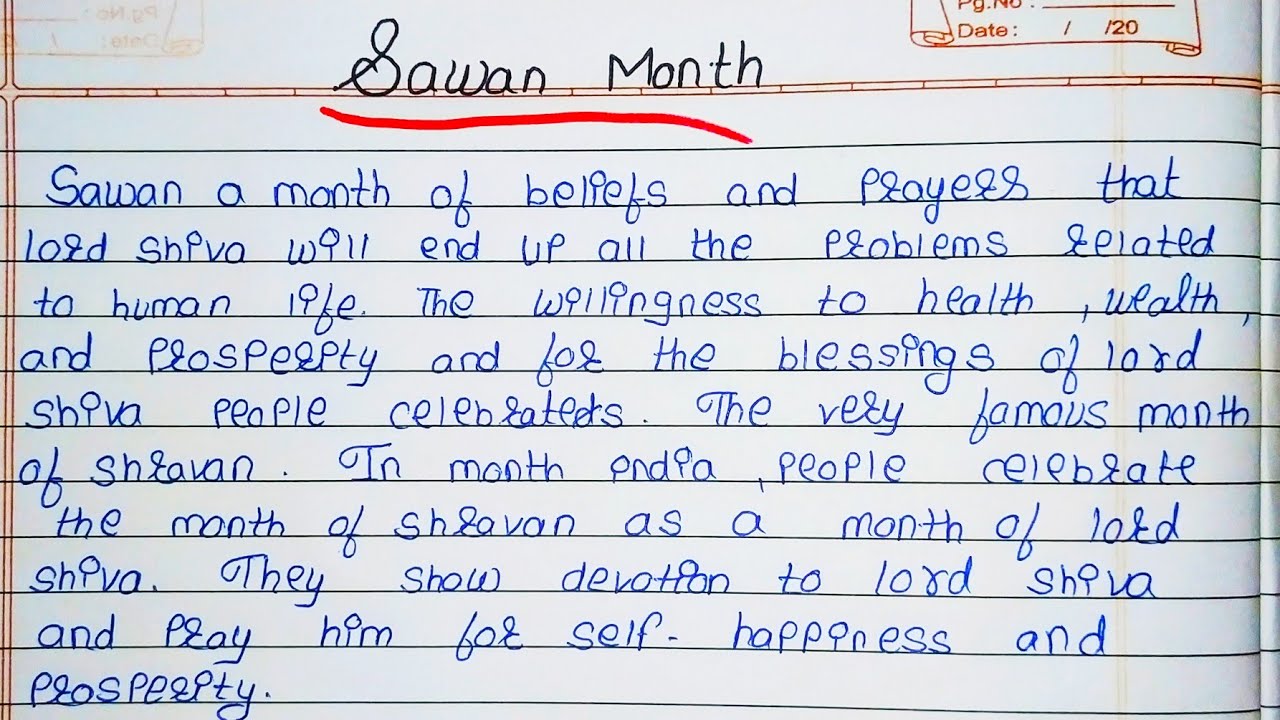 Pg.No :
Date: / /20
Sawan Month
Sawan a month of beliefs and prayers that
lord shiva will end up all the problems related
to human life. The willingness to health, wealth,
and prosperity and for the blessings of lord
shiva people celebrateets. The very famous month
of shravan. In month india, people celebrate
the month of shravan as a month of lord
shiva. They show devotion to lord shiva
and pray him for self- happiness and
prosperity.